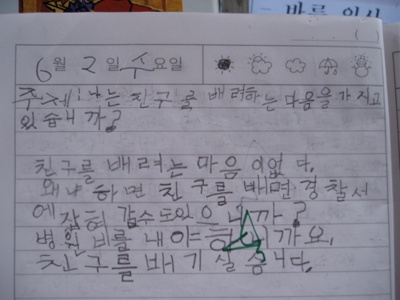 바를 인사
6월 2일 수요일
주제: 나는 친구를 배려하는 마음을 가지고
있습니까?
친구를 배려는 마음이 없다.
왜냐하면 친구를 배면 경찰서
에 잡혀 갈수도 있으니까?
병원비를 내야 하니까요,
친구를 배기 실습니다.